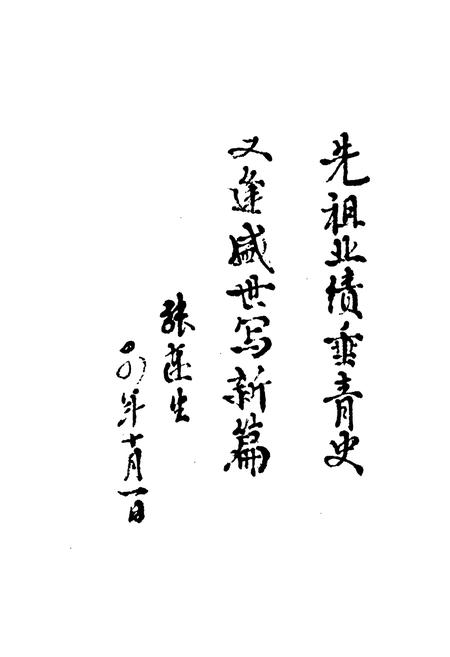 先祖业绩垂青史
又逢盛世写新篇
张莲生
年十月一日